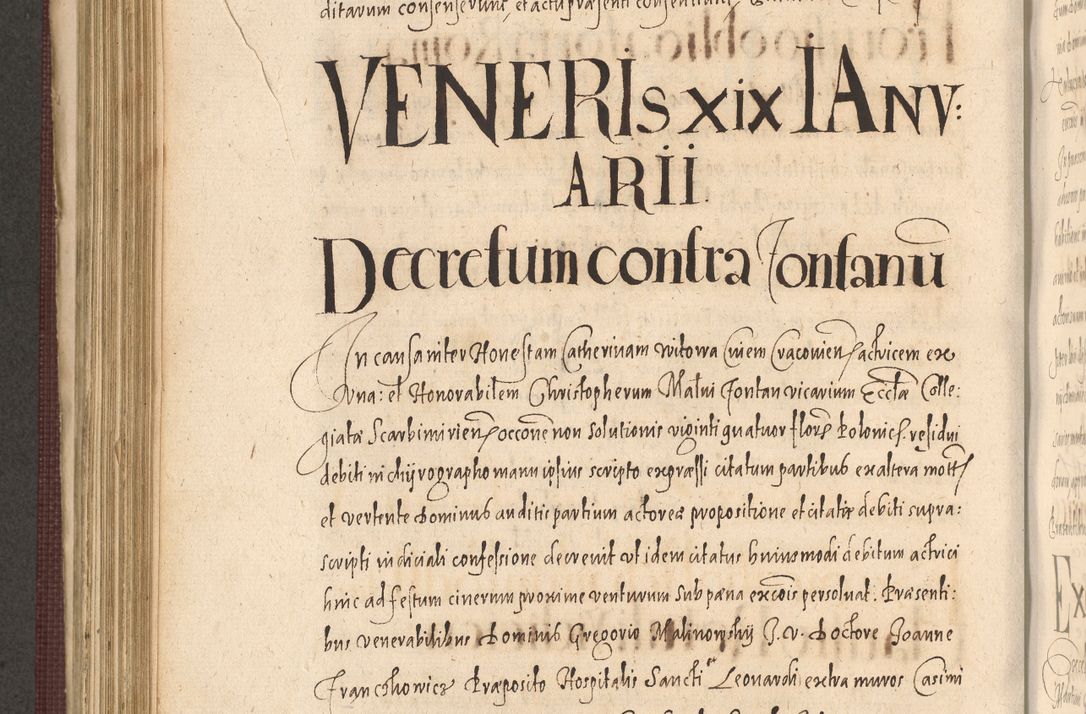 ditarum consenserunt, et actu præsenti consentiunt,
VENERIS XIX IANV:
ARII.
Decretum contra Fontanū
In causa inter Honestam Catherinam Witowa Civem Cracovien actricem ex
Vna: et Honorabilem Christopherum Malvi Fontan vicarium Eccłæ Colle:
giatæ Scarbimirien occōne non solutionis viginti quatuor floren Polonic. residui
debiti in chijrographo manu ipsius scripto expræssi citatum partibus ex altera mott
et vertente Dominus auditis partium actoreæ propositione et citatæ debiti supra:
scripti iudiciali confessione decrevit vt idem citatus huiusmodi debitum actrici
hinc ad festum cinerum proxime venturum sub pæna excōis persoluat. Præsenti:
bus venerabilibus Dominis Gregorio Malinowskij I. V. Doctore Joanne
Franczkowicz Præposito Hospitalis Sancti Leonardi extra muros Casimi